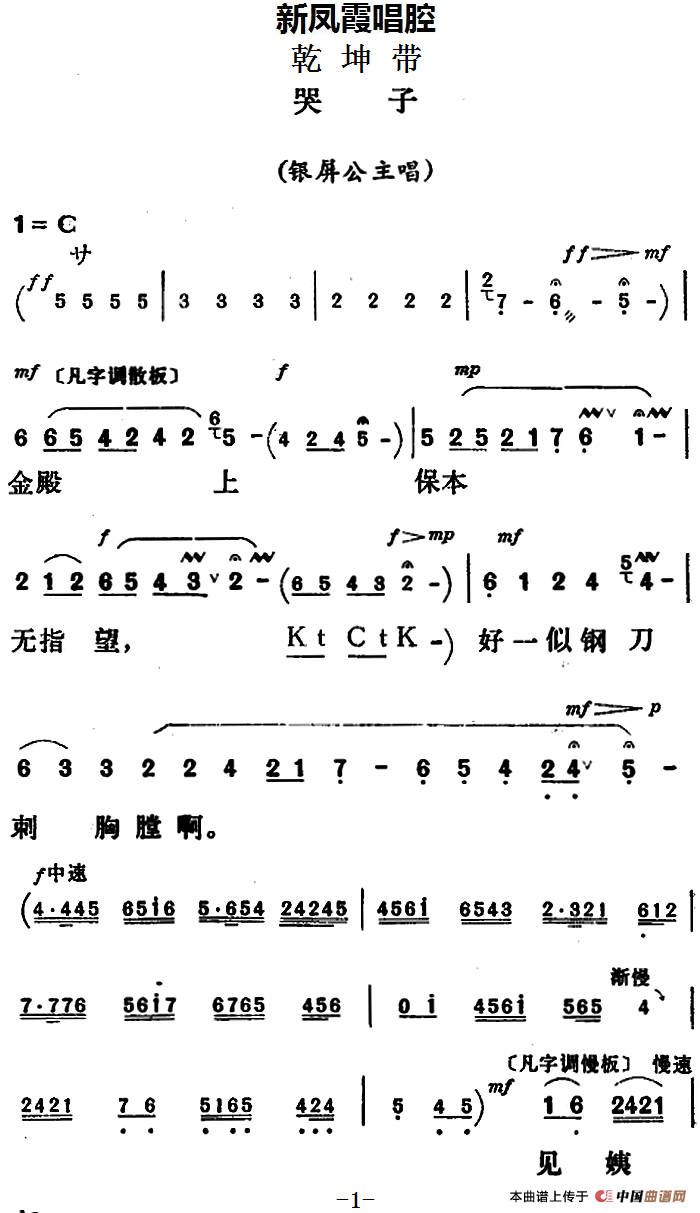 新凤霞唱腔
乾坤带
哭 子
(银屏公主唱)
1=C
サ
ff ff > mf
( 5 5 5 5 | 3 3 3 3 | 2 2 2 2 | 2 7 - 6 - 5 - ) |
mf 〔凡字调散板〕 f mp
6 6 5 4 2 4 2 6 5 - ( 4 2 4 5 - ) | 5 2 5 2 1 7 6 ∨ 1 - |
金殿 上 保本
f f > mp mf
2 1 2 6 5 4 3 ∨ 2 - ( 6 5 4 3 2 - ) | 6 1 2 4 5 4 - |
无指 望, K t C t K - ) 好一似钢 刀
mf > p
6 3 3 2 2 4 2 1 7 - 6 5 4 2 4 ∨ 5 -
刺 胸膛啊。
f 中速
( 4·445 6516 5·654 24245 | 4561 6543 2·321 612 |
7·776 5617 6765 456 | 0 1 4561 565 4 |
渐慢
2421 7 6 5165 424 | 5 4 5 ) mf 1 6 2421
〔凡字调慢板〕 慢速
见 姨
-1-
本曲谱上传于 中国曲谱网